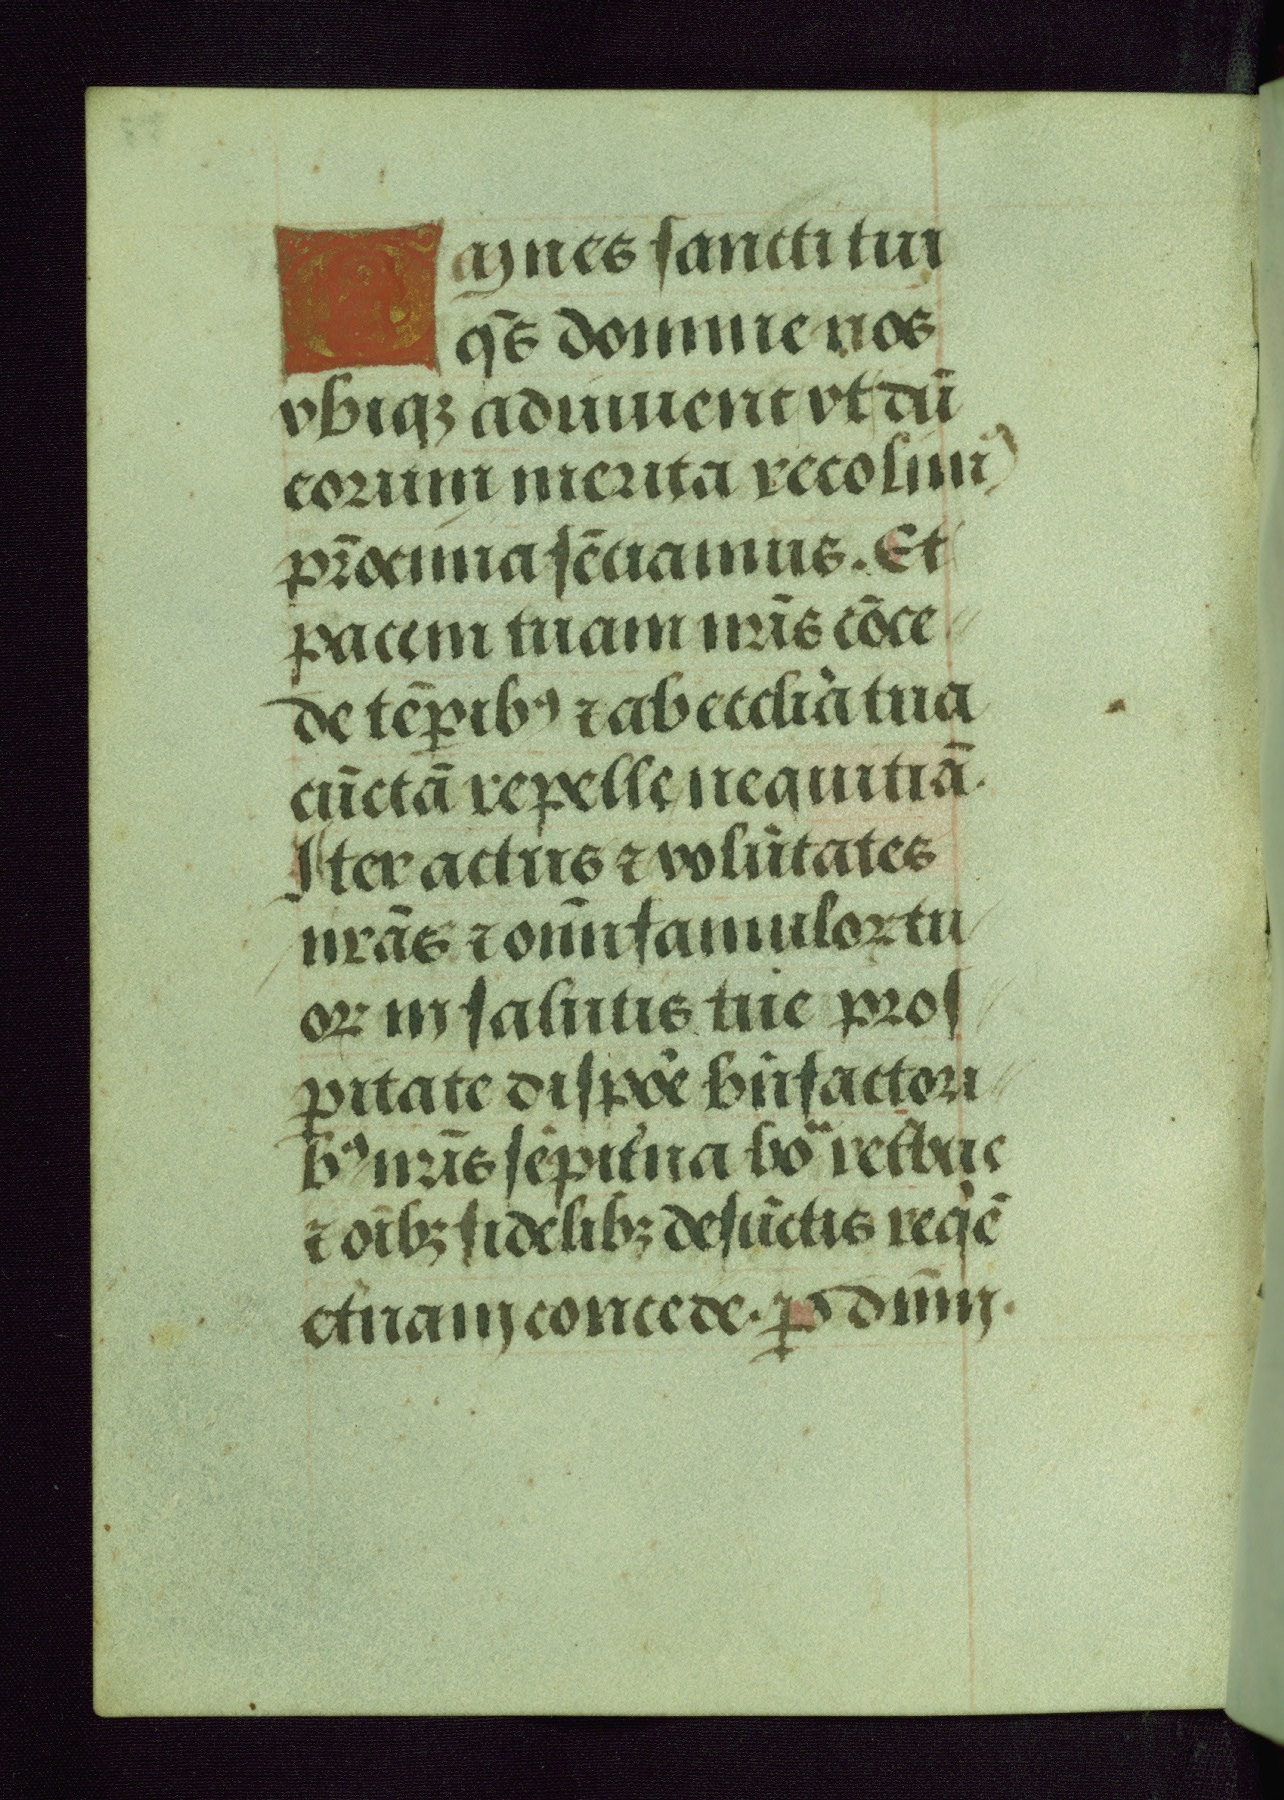 Omnes sancti tui
q̄s domine nos
vbiqꝫ adiuuent vt dū
eorum merita recolimꝰ
pr̄ocinia sēciamus. Et
pacem tuam nr̄is cōce
de tēpibꝰ ⁊ ab eccli̾a tua
cūctā repelle nequitiā.
Iter actus ⁊ volūtates
nr̄as ⁊ om̄i famulor tu
or in salutis tue pros
peritate dispōe bn̄factori
bꝰ nr̄is sēpit̾na bōa ret̾bue
⁊ oībꝫ fidelibꝫ defūctis reqiē
et̾nam concede. per dn̄m.